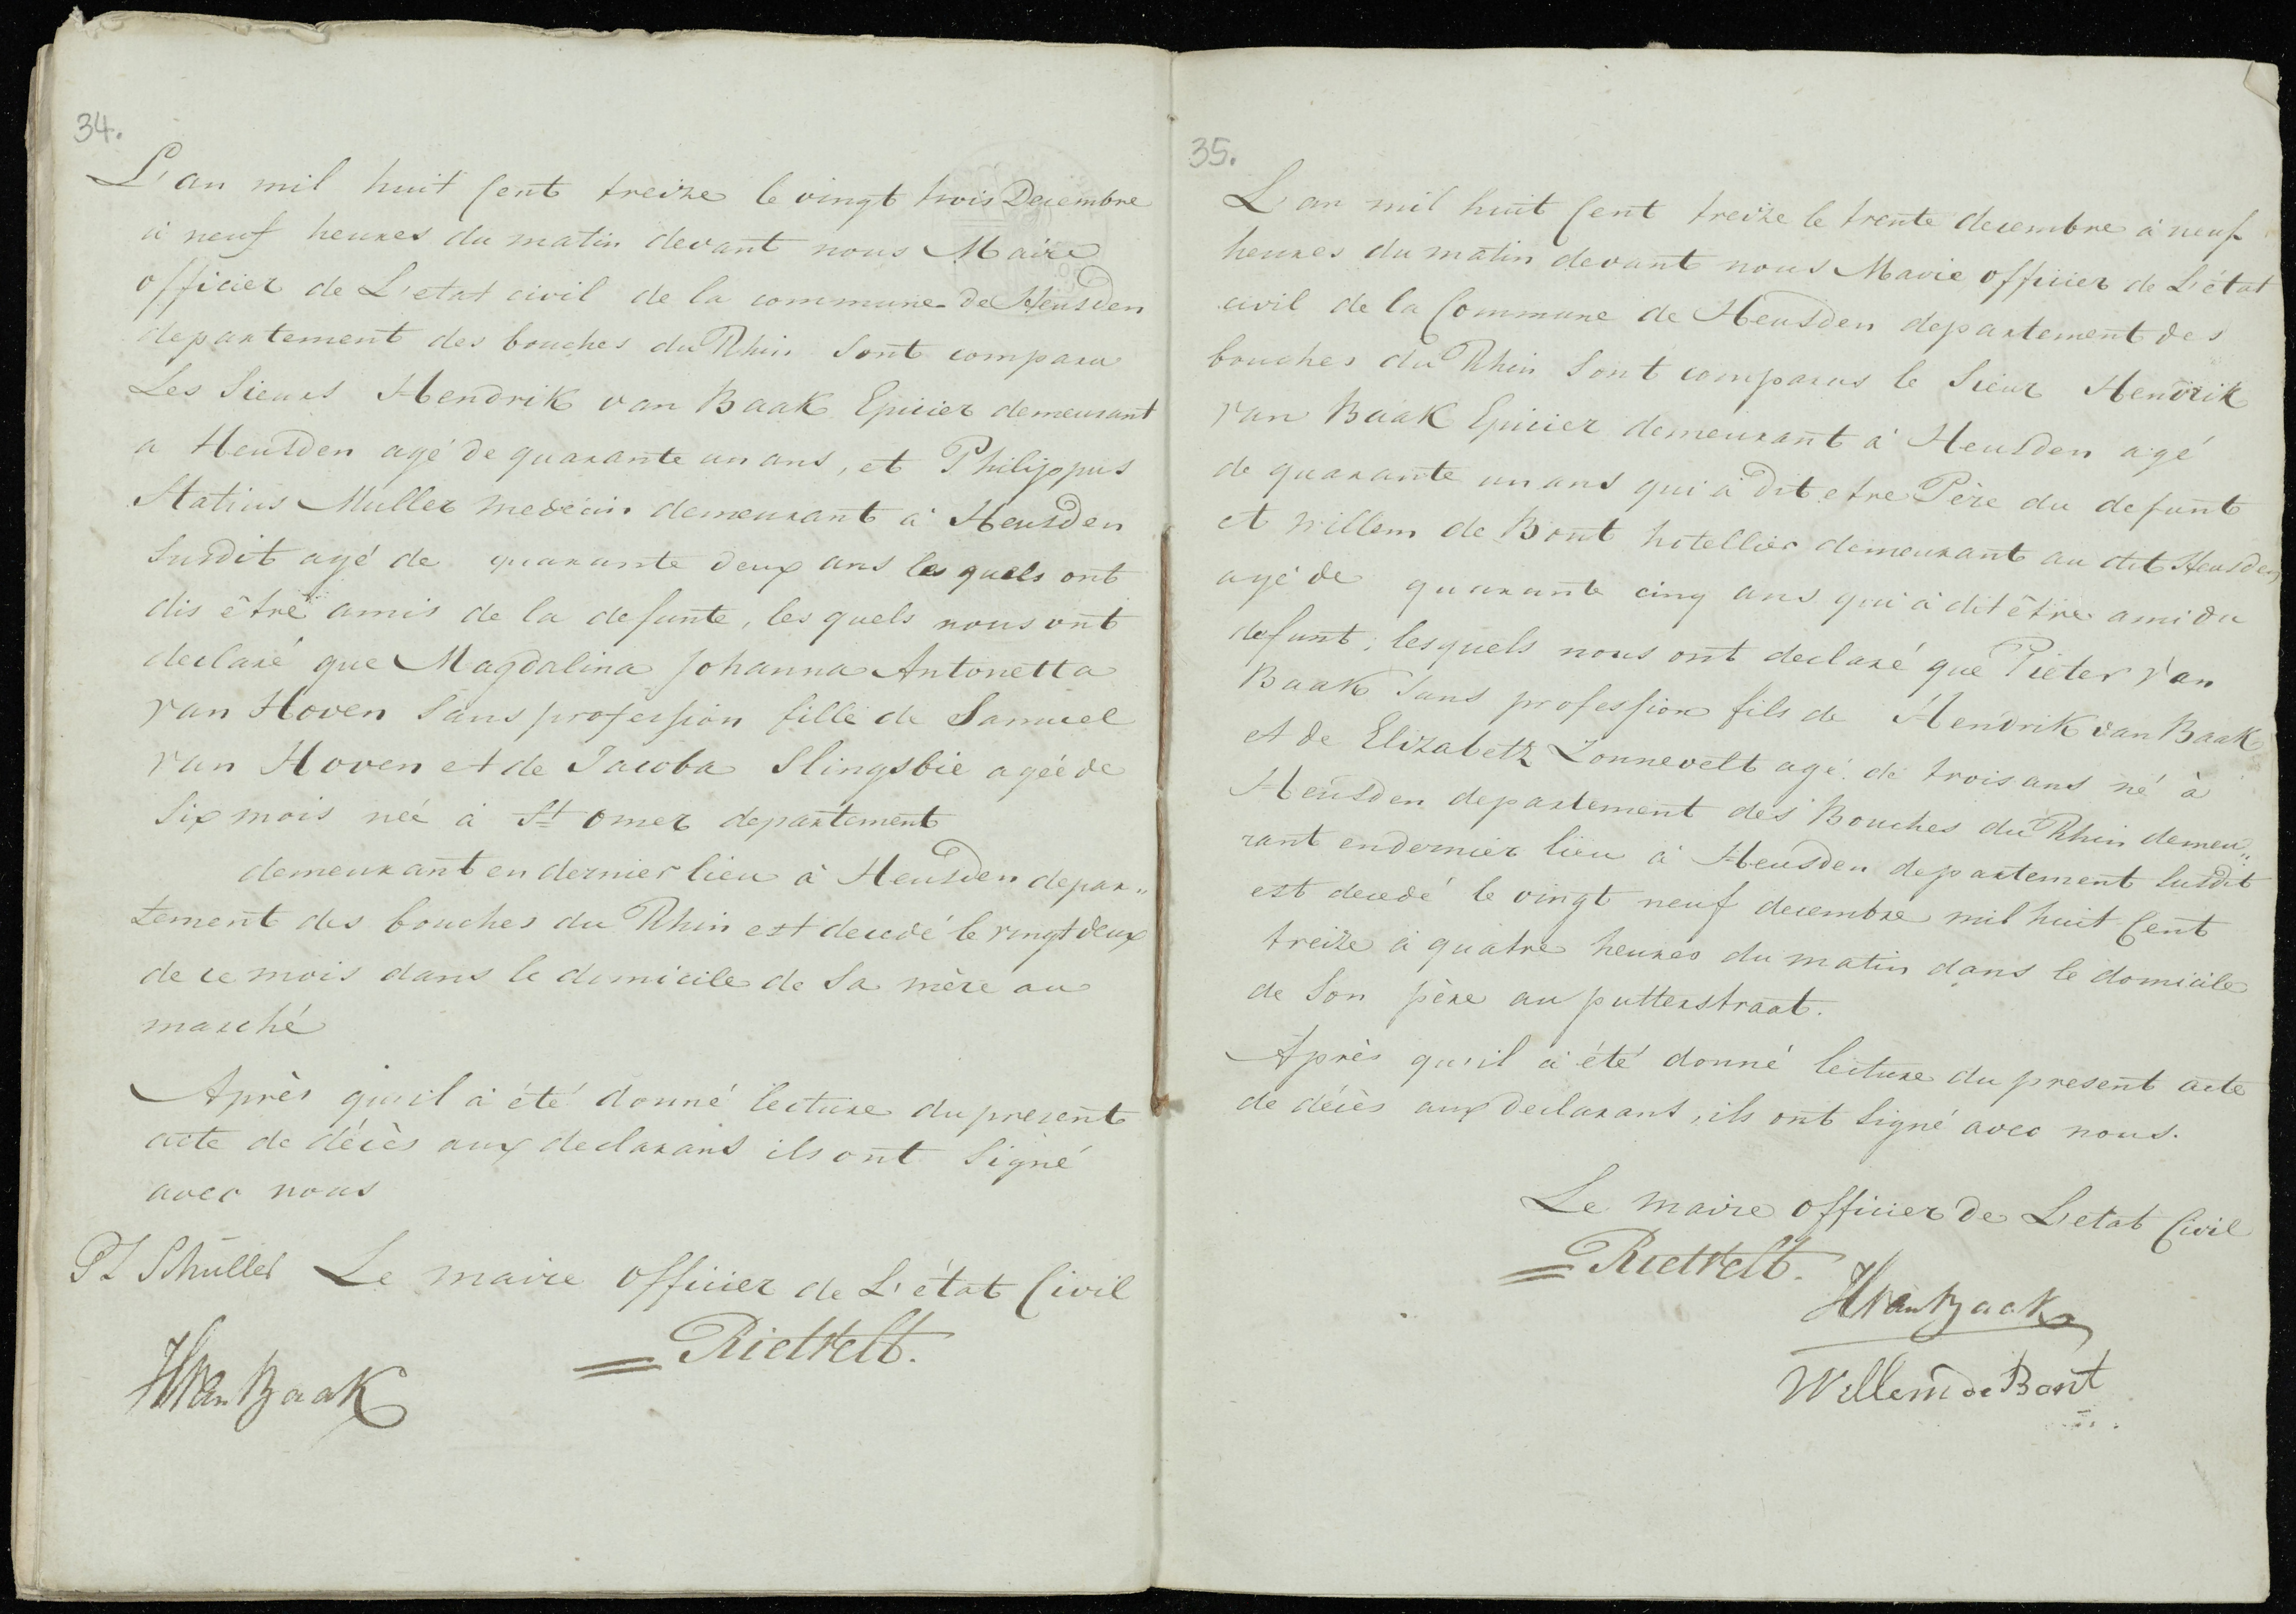 34.
L'an mil huit Cent treize le vingt trois Decembre
à neuf heures du matin devant nous Maire
officier de L'etat civil de la commune de Heusden
departement des bouches du Rhin sont comparu
Les Sieurs Hendrik van Baak Epicier demeurant
a Heusden agé de quarante un ans, et Philippus
Statius Muller medecin demeurant à Heusden
Susdit agé de quarante deux ans les quels ont
dis être amis de la defunte, les quels nous ont
declaré que Magdalina Johanna Antonetta
van Hoven Sans profession fille de Samuel
van Hoven et de Jacoba Slingsbie ageé de
Six mois neé à St omer departement
demeurant en dernier lieu à Heusden depar„
tement des bouches du Rhin est decedé le vingt deux
de ce mois dans le domicile de Sa mère au
marché
Après qu'il à été donné lecture du present
acte de décès aux declarans ils ont Signé
avec nous
Le maire officier de L'état Civil
Rietvelt.
HvanBaak
35.
L'an mil huit Cent treize le trente decembre à neuf
heures du matin devant nous Mavie officier de L'état
civil de la Commune de Heusden departement des
bouches du Rhin Sont comparus le Sieur Hendrik
van Baak Epicier demeurant à Heusden agé
de quarante un ans qui à Dit etre Père du defunt
et Willem de Bont hotellier demeurant au dit Heusden
agé de quarante cinq ans qui à dit être ami du
defunt; lesquels nous ont declaré que Pieter Van
Baak Sans profession fils de Hendrik van Baak
et de Elizabeth Zonnevelt agé de trois ans né à
Heusden departement des Bouches du Rhin demeu„
rant en dernier lieu à Heusden departement Susdit
est decedé le vingt neuf decembre mil huit Cent
treize à quatre heures du matin dans le domicile
de Son père au putterstraat.
Après qu'il à été donné lecture du present acte
de décès aux Declarans, ils ont Signé avec nous.
Le maire officier de L'etat Civil
Rietvelt.
HvanBaak
Willem de Bont